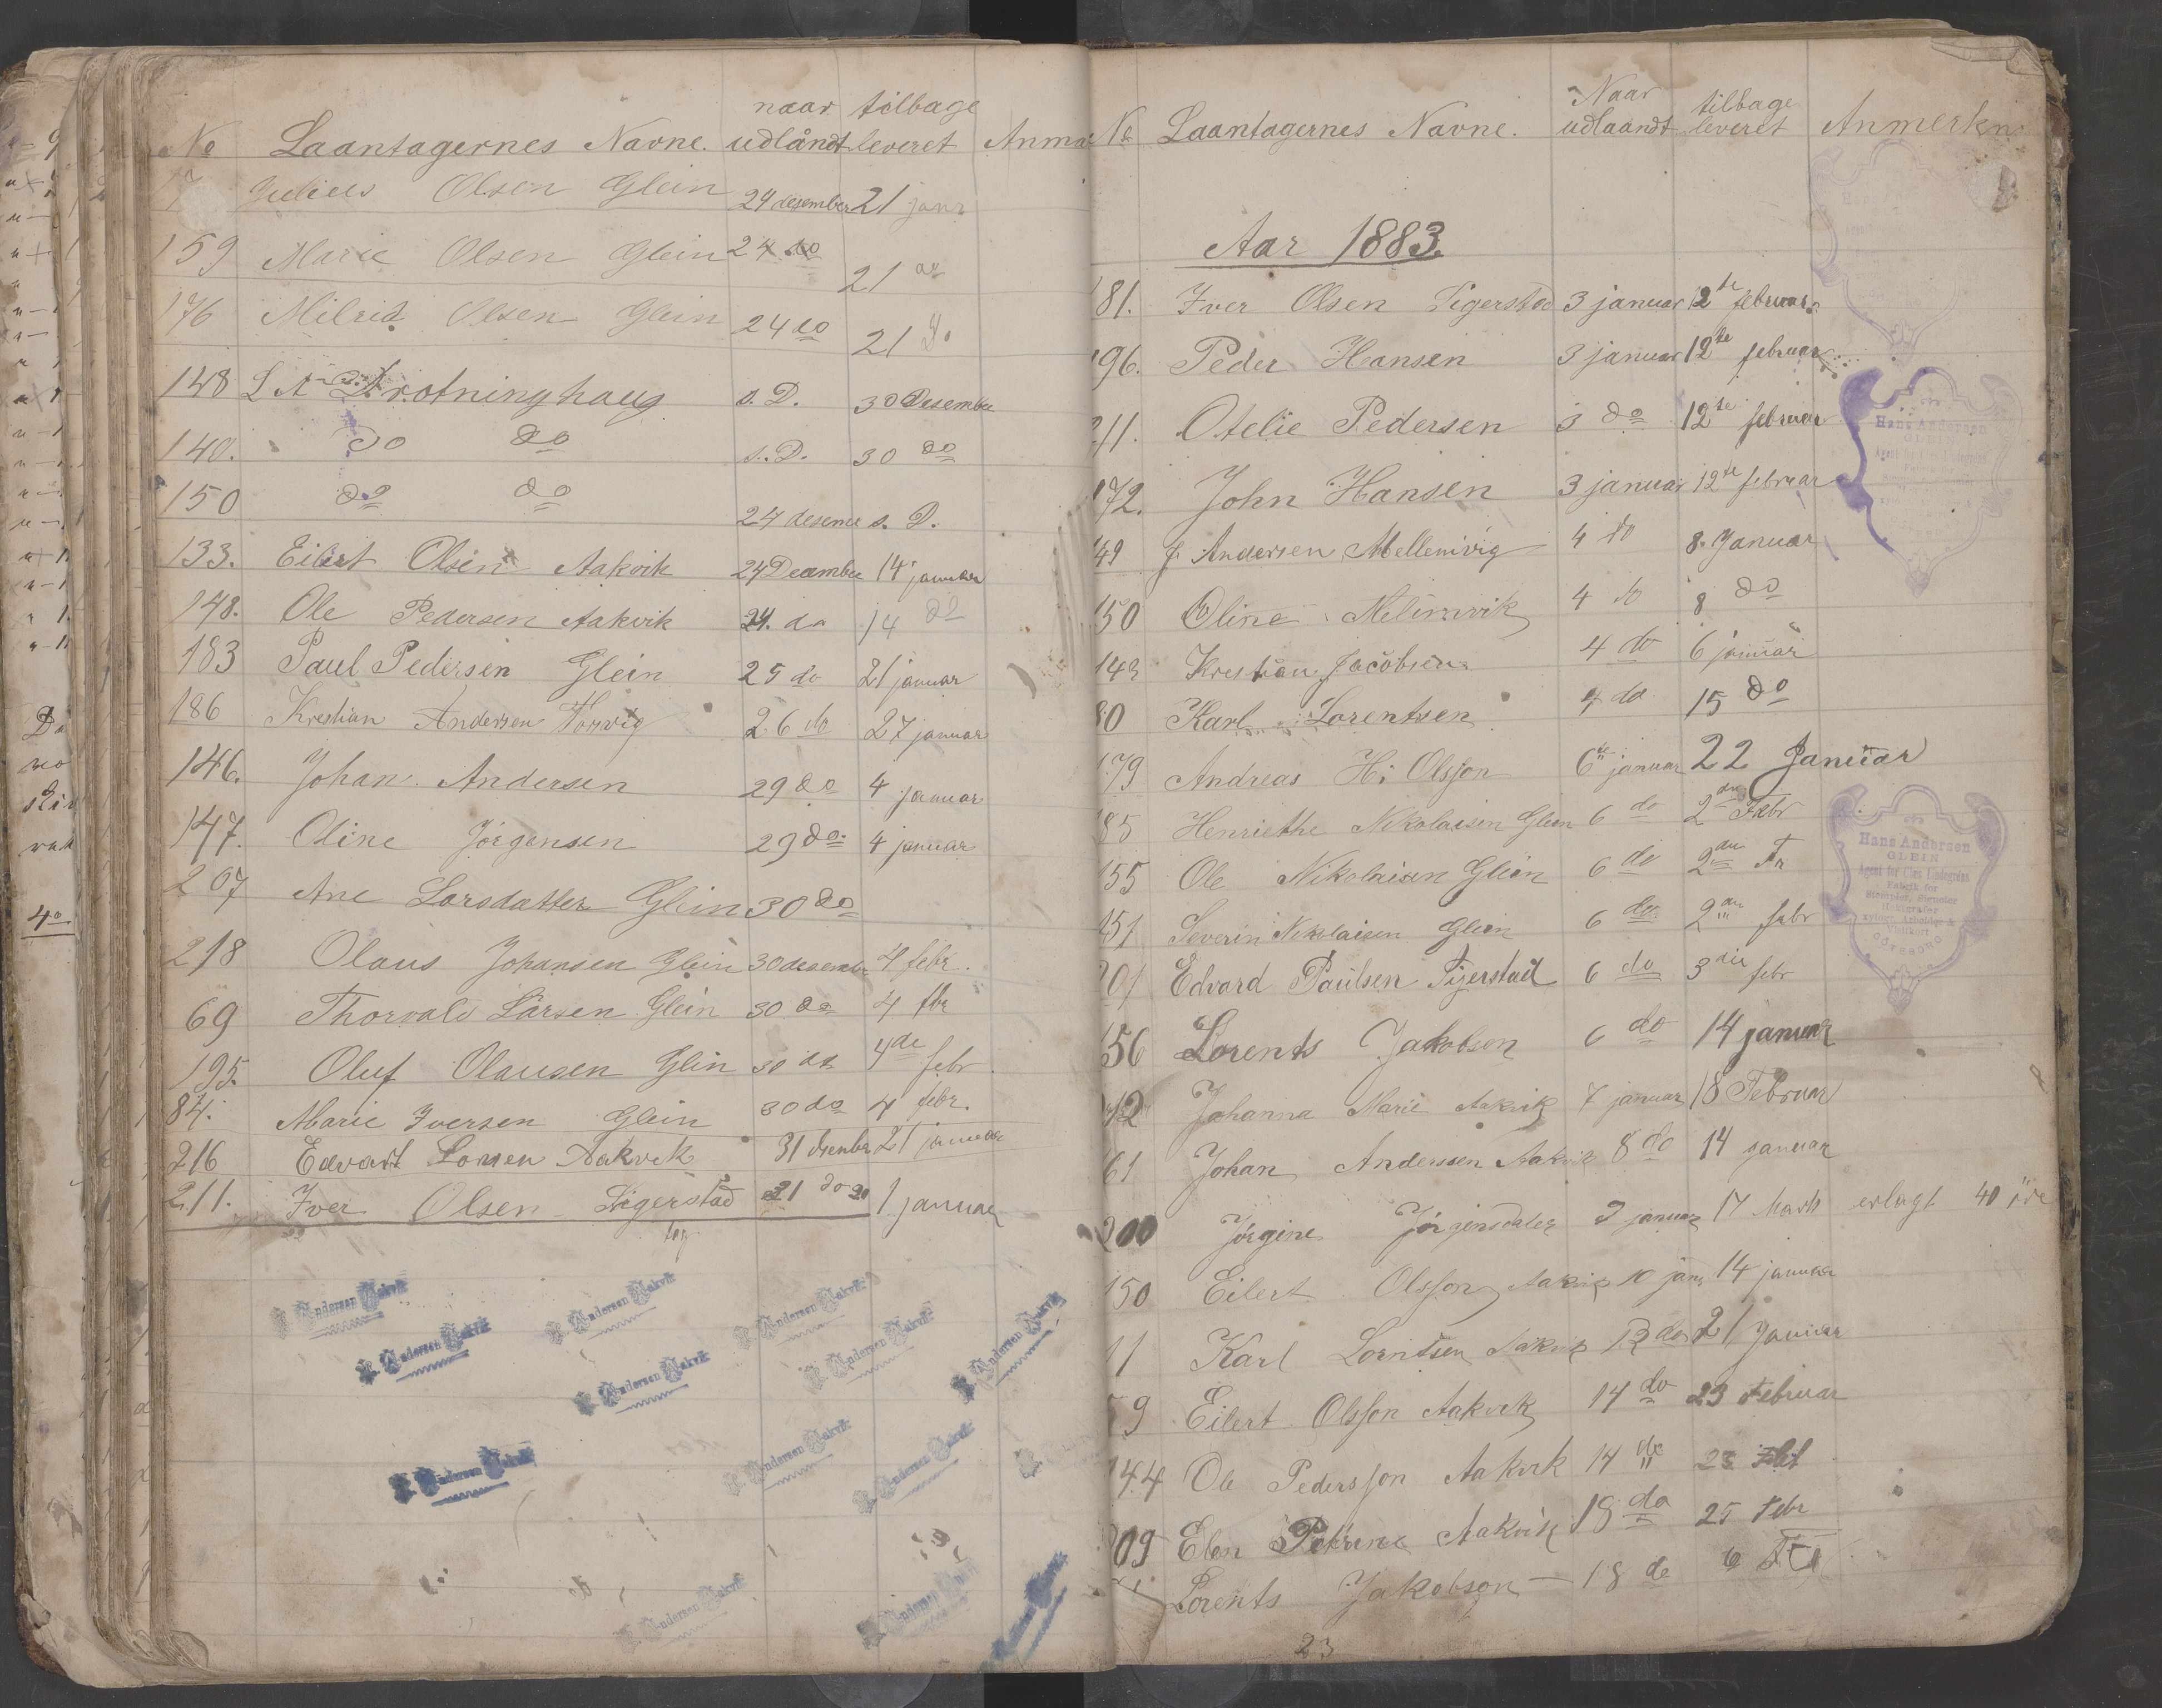 No Laantagernes Navne. naar udlåndt tilbage leveret Anmæ
17 Julius Olsen Glein 24 desember 21 janr
159 Marie Olsen Glein 24 do 21 do
176 Milrid Olsen Glein 24 do 21 Do
148 L A Drotninghaug s. D. 30 Desember
140. Do do s. D. 30 do
150 do do 24 desem s. D.
133. Eilert Olsen Aakvik 24 December 14 januar
148. Ole Pedersen Aakvik 24. do 14 do
183 Paul Pedersen Glein 25 do 21 januar
186 Krestian Andersen 26 do 27 januar
146. Johan Andersen 29 do 4 januar
147. Oline Jörgensen 29 do. 4 januar
207 Ane Larsdatter Glein 30 do
218 Olaus Johansen Glein 30 desembr 4 febr.
69 Thorvald Larsen Glein 30 do 4 fbr
195. Oluf Olausen Glin 30 do 4de febr
84. Marie Iversen Glein 30 do 4 febr.
216 Edvart Larsen Aakvik 31 desember 21 januar
211. Iver Olsen Sigerstad 31 do 1 januar
Andersen Aakvik
Andersen Aakvik
Andersen Aakvik
Andersen Aakvik
Andersen Aakvik
Andersen Aakvik
Andersen Aakvik
Andersen Aakvik
Andersen Aakvik
Andersen Aakvik
Andersen Aakvik
Andersen Aakvik
No Laantagernes Navne. Naar udlaandt tilbage leveret Anmerkn
Aar 1883.
81. Iver Olsen Sigerstad 3 januar 12te februar
96. Peder Hansen 3 januar 12te februar
211. Otelie Pedersen 3 do 12te februar
172. John Hansen 3 januar 12te februar
149 J. Andersen Mellemvig 4 do 8. Januar
150 Oline Melemvik 4 do 8 do
143 Krestian Jacobsen 4 do 6 januar
80 Karl Lorentsen 4 do 15 do
179 Andreas H. Olsson 6te januar 22 Januar
185 Henriethe Nikolaisen Glein 6 do 2den Febr
155 Ole Nikolaisen Glein 6 do 2den Fr
151 Severin Nikolaisen Glein 6 do 2den febr
201 Edvard Paulsen Sigerstad 6 do 3die febr
156 Lorents Jakobsen 6 do 14 januar
12 Johanna Marie Aakvik 7 januar 18 Februar
61 Johan Anderssen Aakvik 8 do 14 januar
200 Jörgine Jörginsdater 9 januar 17 Marts erlagt 40 öre
150 Eilert Olsson Aakvig 10 jan 14 januar
11 Karl Lorntsen Aakvik 13 do 21 Januar
59 Eilert Olsson Aakvik 14 do 23 Februar
144 Ole Pedersson Aakvik 14 do 23 Feb
209 Elen Petrine Aakvik 18 do 25 Febr
Lorents Jakobson 18 do 6
23
Hans Andersen
GLEIN
Hans Andersen
GLEIN
Agent for Clas Lindegrens
Fabrik for
Stempler,
Xylogr. Arbeider &
GÖTEBORG